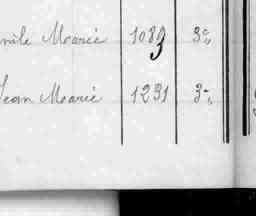 mile Marie 1083 3e
Jean Marie 1231 3e